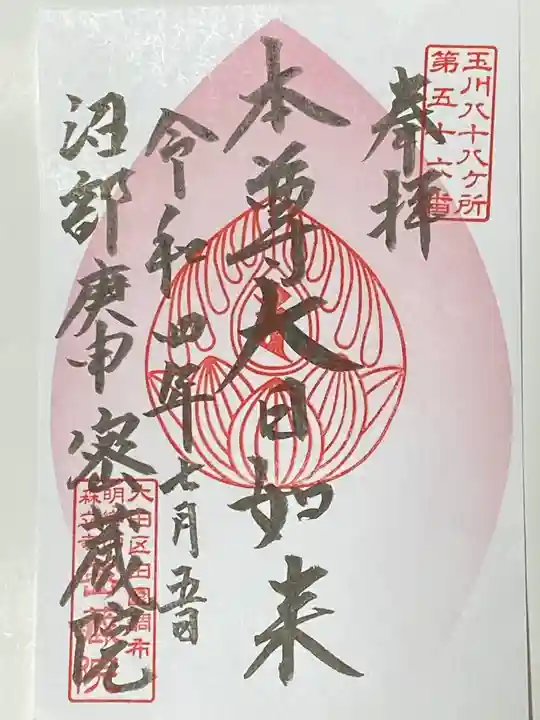 玉川八十八ケ所
第五十六番
奉拝
本尊大日如来
令和四年七月五日
沼部庚申密蔵院
大田区田園調布
密蔵院